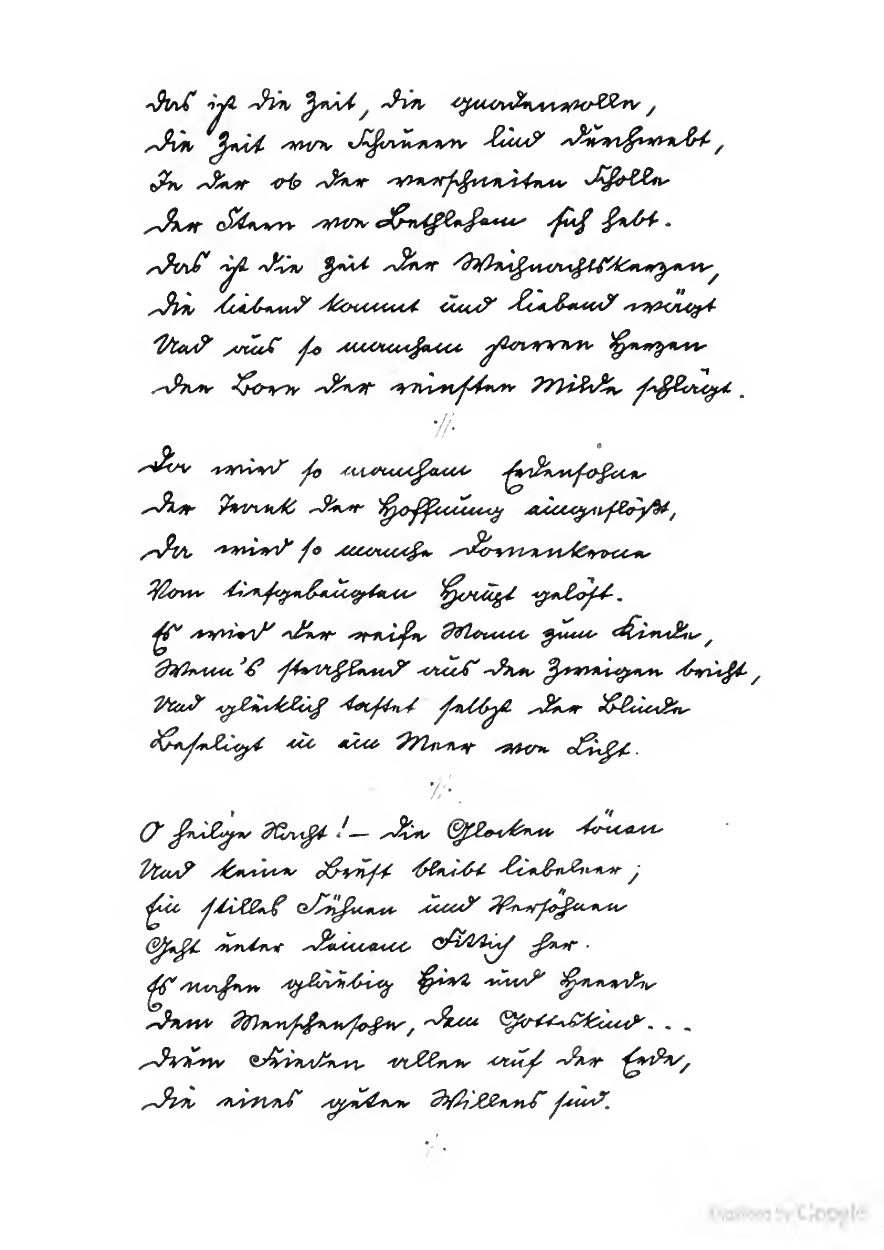 Das ist die Zeit, die gnadenvolle,
Die Zeit von Schauern lind durchwebt,
In der ob der verschneiten Scholle
Der Stern von Bethlehem sich hebt.
Das ist die Zeit der Weihnachtskerzen,
Die liebend kommt und liebend wägt
Und aus so manchem starren Herzen
Den Born der reinsten Milde schlägt.
·//·
Da wird so manchem Erdensohne
Der Trank der Hoffnung eingeflößt,
Da wird so manche Dornenkrone
Vom tiefgebeugten Haupt gelöst.
Es wird der reife Mann zum Kinde,
Wenn's strahlend aus den Zweigen bricht,
Und glücklich tastet selbst der Blinde
Beseligt in ein Meer von Licht.
·//·
O heilige Nacht! – Die Glocken tönen
Und keine Brust bleibt liebeleer;
Ein stilles Sühnen und Versöhnen
Geht unter deinem Fittich her.
Es nahen gläubig Hirt und Heerde
Dem Menschensohn, dem Gotteskind...
Drum Frieden allen auf der Erde,
Die eines guten Willens sind.
·/·
Digitized by Google